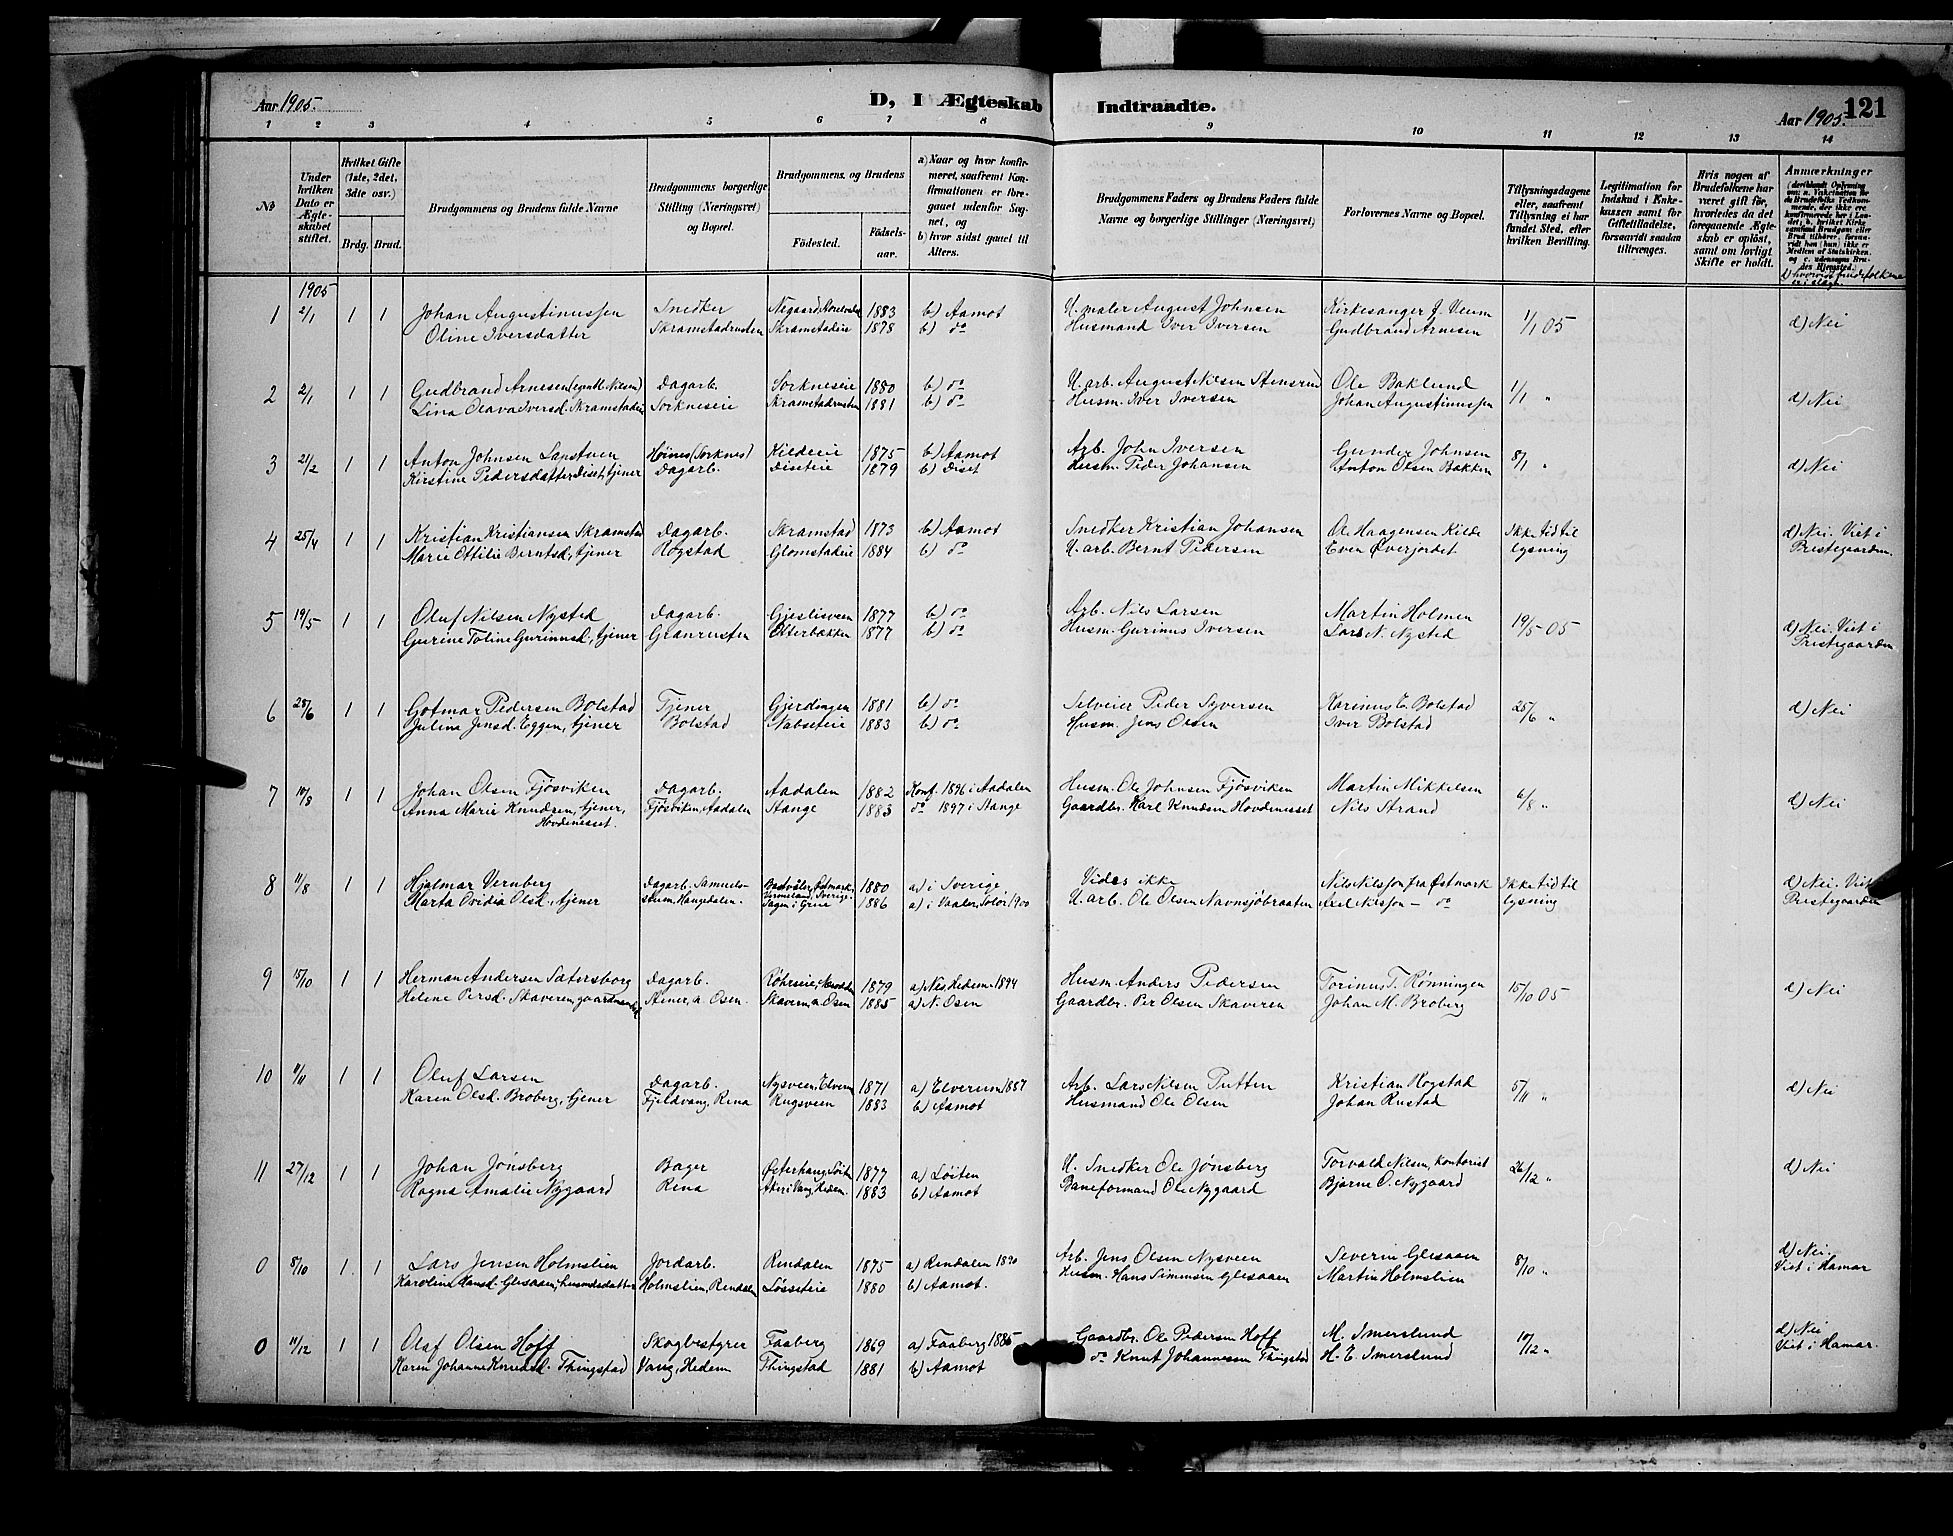 Aar 1905.
D, I Ægteskab Indtraadte.
Aar 1905.
121
1 2 3 4 5 6 7 8 9 10 11 12 13 14
No
Under hvilken Dato er Ægteskabet stiftet.
Hvilket Gifte (1ste, 2det, 3die osv.)
Brdg. Brud.
Brudgommens og Brudens fulde Navne
Brudgommens borgerlige Stilling (Næringsvei) og Bopæl.
Brudgommens og Brudens
Fødested.
Fødselsaar.
a) Naar og hvor konfirmeret, saafremt Konfirmationen er foregaaet udenfor Sognet, og
b) hvor sidst gaaet til Alters.
Brudgommens Faders og Brudens Faders fulde Navne og borgerlige Stillinger (Næringsvei)
Forlovernes Navne og Bopæl.
Tillysningsdagene eller, saafremt Tillysning ei har fundet Sted, efter hvilken Bevilling.
Legitimation for Indskud i Enkekassen samt for Giftetilladelse, forsaavidt saadan tiltrænges.
Hvis nogen af Brudefolkene har været gift før, hvorledes da det foregaaende Ægteskab er opløst, samt om lovligt Skifte er holdt.
Anmærkninger
1905
1 2/1 1 1 Johan Augustinussen Snedker 1883 b) Aamot U. maler August Johnsen Kirkesanger J. Veum 1/1 05 d) Nei
Oline Iversdatter Skramstadrusten Skramstadeie 1878 b) do Husmand Iver Iversen Gudbrand Arnesen
2 2/1 1 1 Gudbrand Arnesen (egentl. Nilsen) Dagarb. Sorkneseie 1880 b) do U. arb. August Nilsen Stensrud Ole Baklund 1/1 " d) Nei
Lina Olava Iversd. Skramstadeie Sorkneseie Skramstadrusten 1881 b) do Husm. Iver Iversen Johan Augustinussen
3 21/2 1 1 Anton Johnsen Lanstuen Høines (Sorknes) Kildeeie 1875 b) Aamot Arb. John Iversen Gunder Johnsen 8/1 " d) Nei
Kirstine Pedersdatter Diset, tjener Dagarb. Diseteie 1879 b) Diset Husm. Peder Johansen Anton Olsen Bakken
4 25/4 1 1 Kristian Kristiansen Skramstad Dagarb. Skramstad 1873 b) Aamot Snedker Kristian Johansen Ole Haagensen Kilde Ikke tid til d) Nei. Viet i
Marie Ottilie Berntsd., tjener Høgstad Glomstadeie 1884 b) do U. arb. Bernt Pedersen Even Øverjordet lysning Prestegaarden.
5 19/5 1 1 Oluf Nilsen Nysted Dagarb. Gjeslisveen 1877 b) do Arb. Nils Larsen Martin Holmen 19/5-05 d) Nei. Viet i
Gurine Toline Gurinusd., tjener Granrusten Otterbækken 1877 b) do Husm. Gurinus Iversen Lars N. Nysted Prestegaarden
6 28/6 1 1 Gotmar Pedersen Bolstad Tjener Gjerdingen 1881 b) do Selveier Peder Syversen Karinus E. Bolstad 25/6 " d) Nei
Julina Jensd. Eggen, tjener Bolstad Nabseteie 1883 b) do Husm. Jens Olsen Iver Bolstad
7 10/8 1 1 Johan Olsen Fjøsviken Dagarb. Aadalen 1882 Konf. 1896 i Aadalen Husm. Ole Johnsen Fjøsviken Martin Mikkelsen 6/8 " d) Nei
Anna Marie Knudsen, tjener, Fjøsviken, Aadalen Stange 1883 do 1897 i Stange Gaardbr. Karl Knudsen Hovdenesset Nils Strand
Hovdenesset.
8 11/8 1 1 Hjalmar Vernberg Dagarb. Samuels- 1880 a) i Sverige Vides ikke Nils Nilsson fra Østmark Ikke tid til d) Nei. Viet i
Marta Ovidia Olsd., tjener 1886 a) i Vaaler, Solør 1900 U. arb. Ole Olsen Navnsjøbraaten Axel Nilsson - do lysning Prestegaarden
9 15/10 1 1 Herman Andersen Sætersborg Dagarb. 1879 a) Nes, Hedem. 1894 Husm. Anders Pedersen Torinus T. Rønningen 15/10 05 d) Nei
Helene Persd. Skaveren, Stener, n. Osen. Skaveren n. Osen 1885 a) N. Osen Gaardbr. Per Olsen Skaveren Johan M. Broberg
10 1/11 1 1 Oluf Larsen Dagarb. Nysveen, Elverum 1871 a) Elverum 1887 Arb. Lars Nilsen Putten Kristian Rogstad 5/11 " d) Nei
Karen Olsd. Broberg, tjener Fjeldvang, Rena Rugsveen 1883 b) Aamot Husmand Ole Olsen Johan Rustad
11 27/12 1 1 Johan Jønsberg Bager Østerhaug, Løiten 1877 a) Løiten U. Snedker Ole Jønsberg Torvald Nilsen, kontorist 26/12 " d) Nei
Ragna Amalie Nygaard Rena Aker i Vang, Hedem. 1883 b) Aamot Baneformand Ole Nygaard Bjarne O. Nygaard
0 8/10 1 1 Lars Jensen Holmslien Jordarb. Rendalen 1875 a) Rendalen 1890 Arb. Jens Olsen Nysveen Severin Glesaaen 8/10 " d) Nei.
Karoline Hansd. Glesaaen, husmdsdatter Holmslien, Rendalen Løsseteie 1880 b) Aamot. Husm. Hans Simensen Glesaaen Martin Holmslien Viet i Hamar
0 11/12 1 1 Olaf Olsen Hoff Skogbestyrer Faaberg 1869 a) Faaberg 1885 Gaardbr. Ole Pedersen Hoff M. Imerslund 10/12 " d) Nei
Karen Johanne Knudsd. Thingstad Vang, Hedem Thingstad 1881 b) Aamot do Knut Johannesen Thingstad H. E. Imerslund Viet i Hamar.